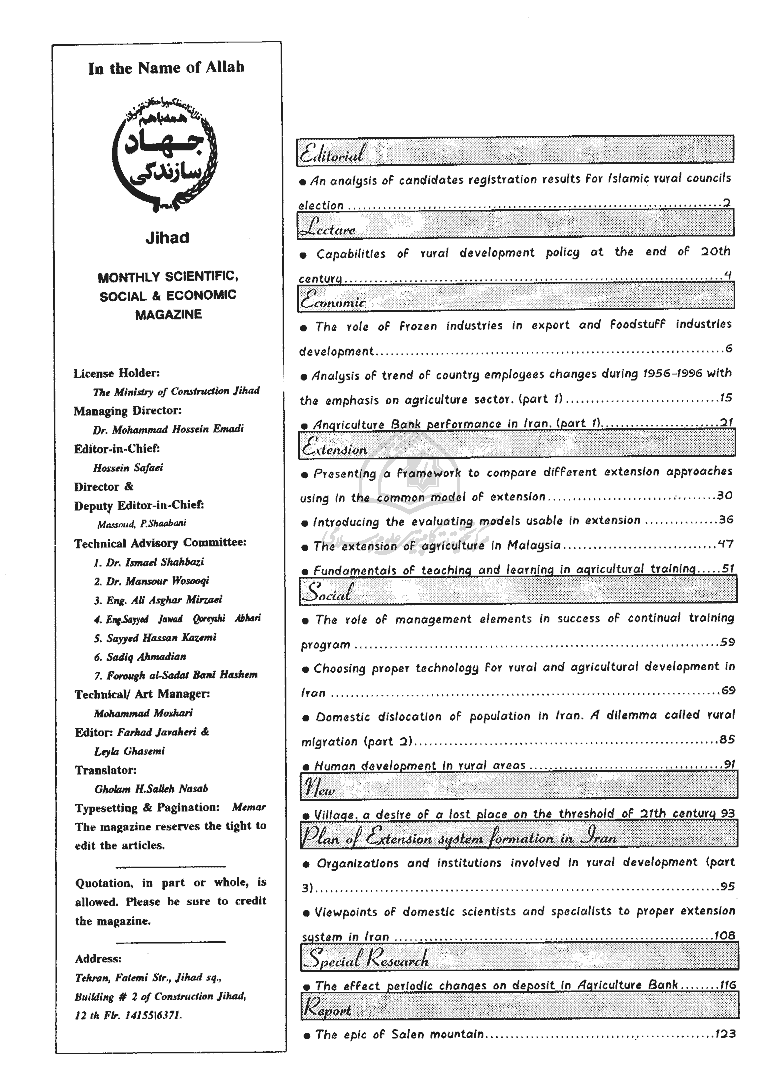 In the Name of Allah
همه با هم
جهاد
سازندگی
Jihad
MONTHLY SCIENTIFIC,
SOCIAL & ECONOMIC
MAGAZINE
License Holder:
The Ministry of Construction Jihad
Managing Director:
Dr. Mohammad Hossein Emadi
Editor-in-Chief:
Hossein Safaei
Director &
Deputy Editor-in-Chief:
Massoud, P.Shaabani
Technical Advisory Committee:
1. Dr. Ismael Shahbazi
2. Dr. Mansour Wosooqi
3. Eng. Ali Asghar Mirzaei
4. Eng.Sayyed Jawad Qoreyshi Abhari
5. Sayyed Hassan Kazemi
6. Sadiq Ahmadian
7. Forough al-Sadat Bani Hashem
Technical/ Art Manager:
Mohammad Moshari
Editor: Farhad Javaheri &
Leyla Ghasemi
Translator:
Gholam H.Salleh Nasab
Typesetting & Pagination: Memar
The magazine reserves the tight to
edit the articles.
Quotation, in part or whole, is
allowed. Please be sure to credit
the magazine.
Address:
Tehran, Fatemi Str., Jihad sq.,
Building # 2 of Construction Jihad,
12 th Flr. 14155\6371.
Editorial
• An analysis of candidates registration results for Islamic rural councils
election ........................................................................2
Lecture
• Capabilities of rural development policy at the end of 20th
century........................................................................4
Economic
• The role of frozen industries in export and foodstuff industries
development....................................................................6
• Analysis of trend of country employees changes during 1956-1996 with
the emphasis on agriculture sector. (part 1) ..............................15
• Anqriculture Bank performance in Iran. (part 1).......................21
Extension
• Presenting a framework to compare different extension approaches
using in the common model of extension.................................30
• Introducing the evaluating models usable in extension ..............36
• The extension of agriculture in Malaysia..............................47
• Fundamentals of teaching and learning in agricultural training.....51
Social
• The role of management elements in success of continual training
program .......................................................................59
• Choosing proper technology for rural and agricultural development in
Iran ...........................................................................69
• Domestic dislocation of population in Iran. A dilemma called rural
migration (part 2)...........................................................85
• Human development in rural areas .....................................91
New
• Village, a desire of a lost place on the threshold of 21th century 93
Plan of Extension system formation in Iran
• Organizations and institutions involved in rural development (part
3)..............................................................................95
• Viewpoints of domestic scientists and specialists to proper extension
system in Iran ..............................................................108
Special Research
• The effect periodic changes on deposit in Agriculture Bank........116
Raport
• The epic of Salen mountain.............................................123